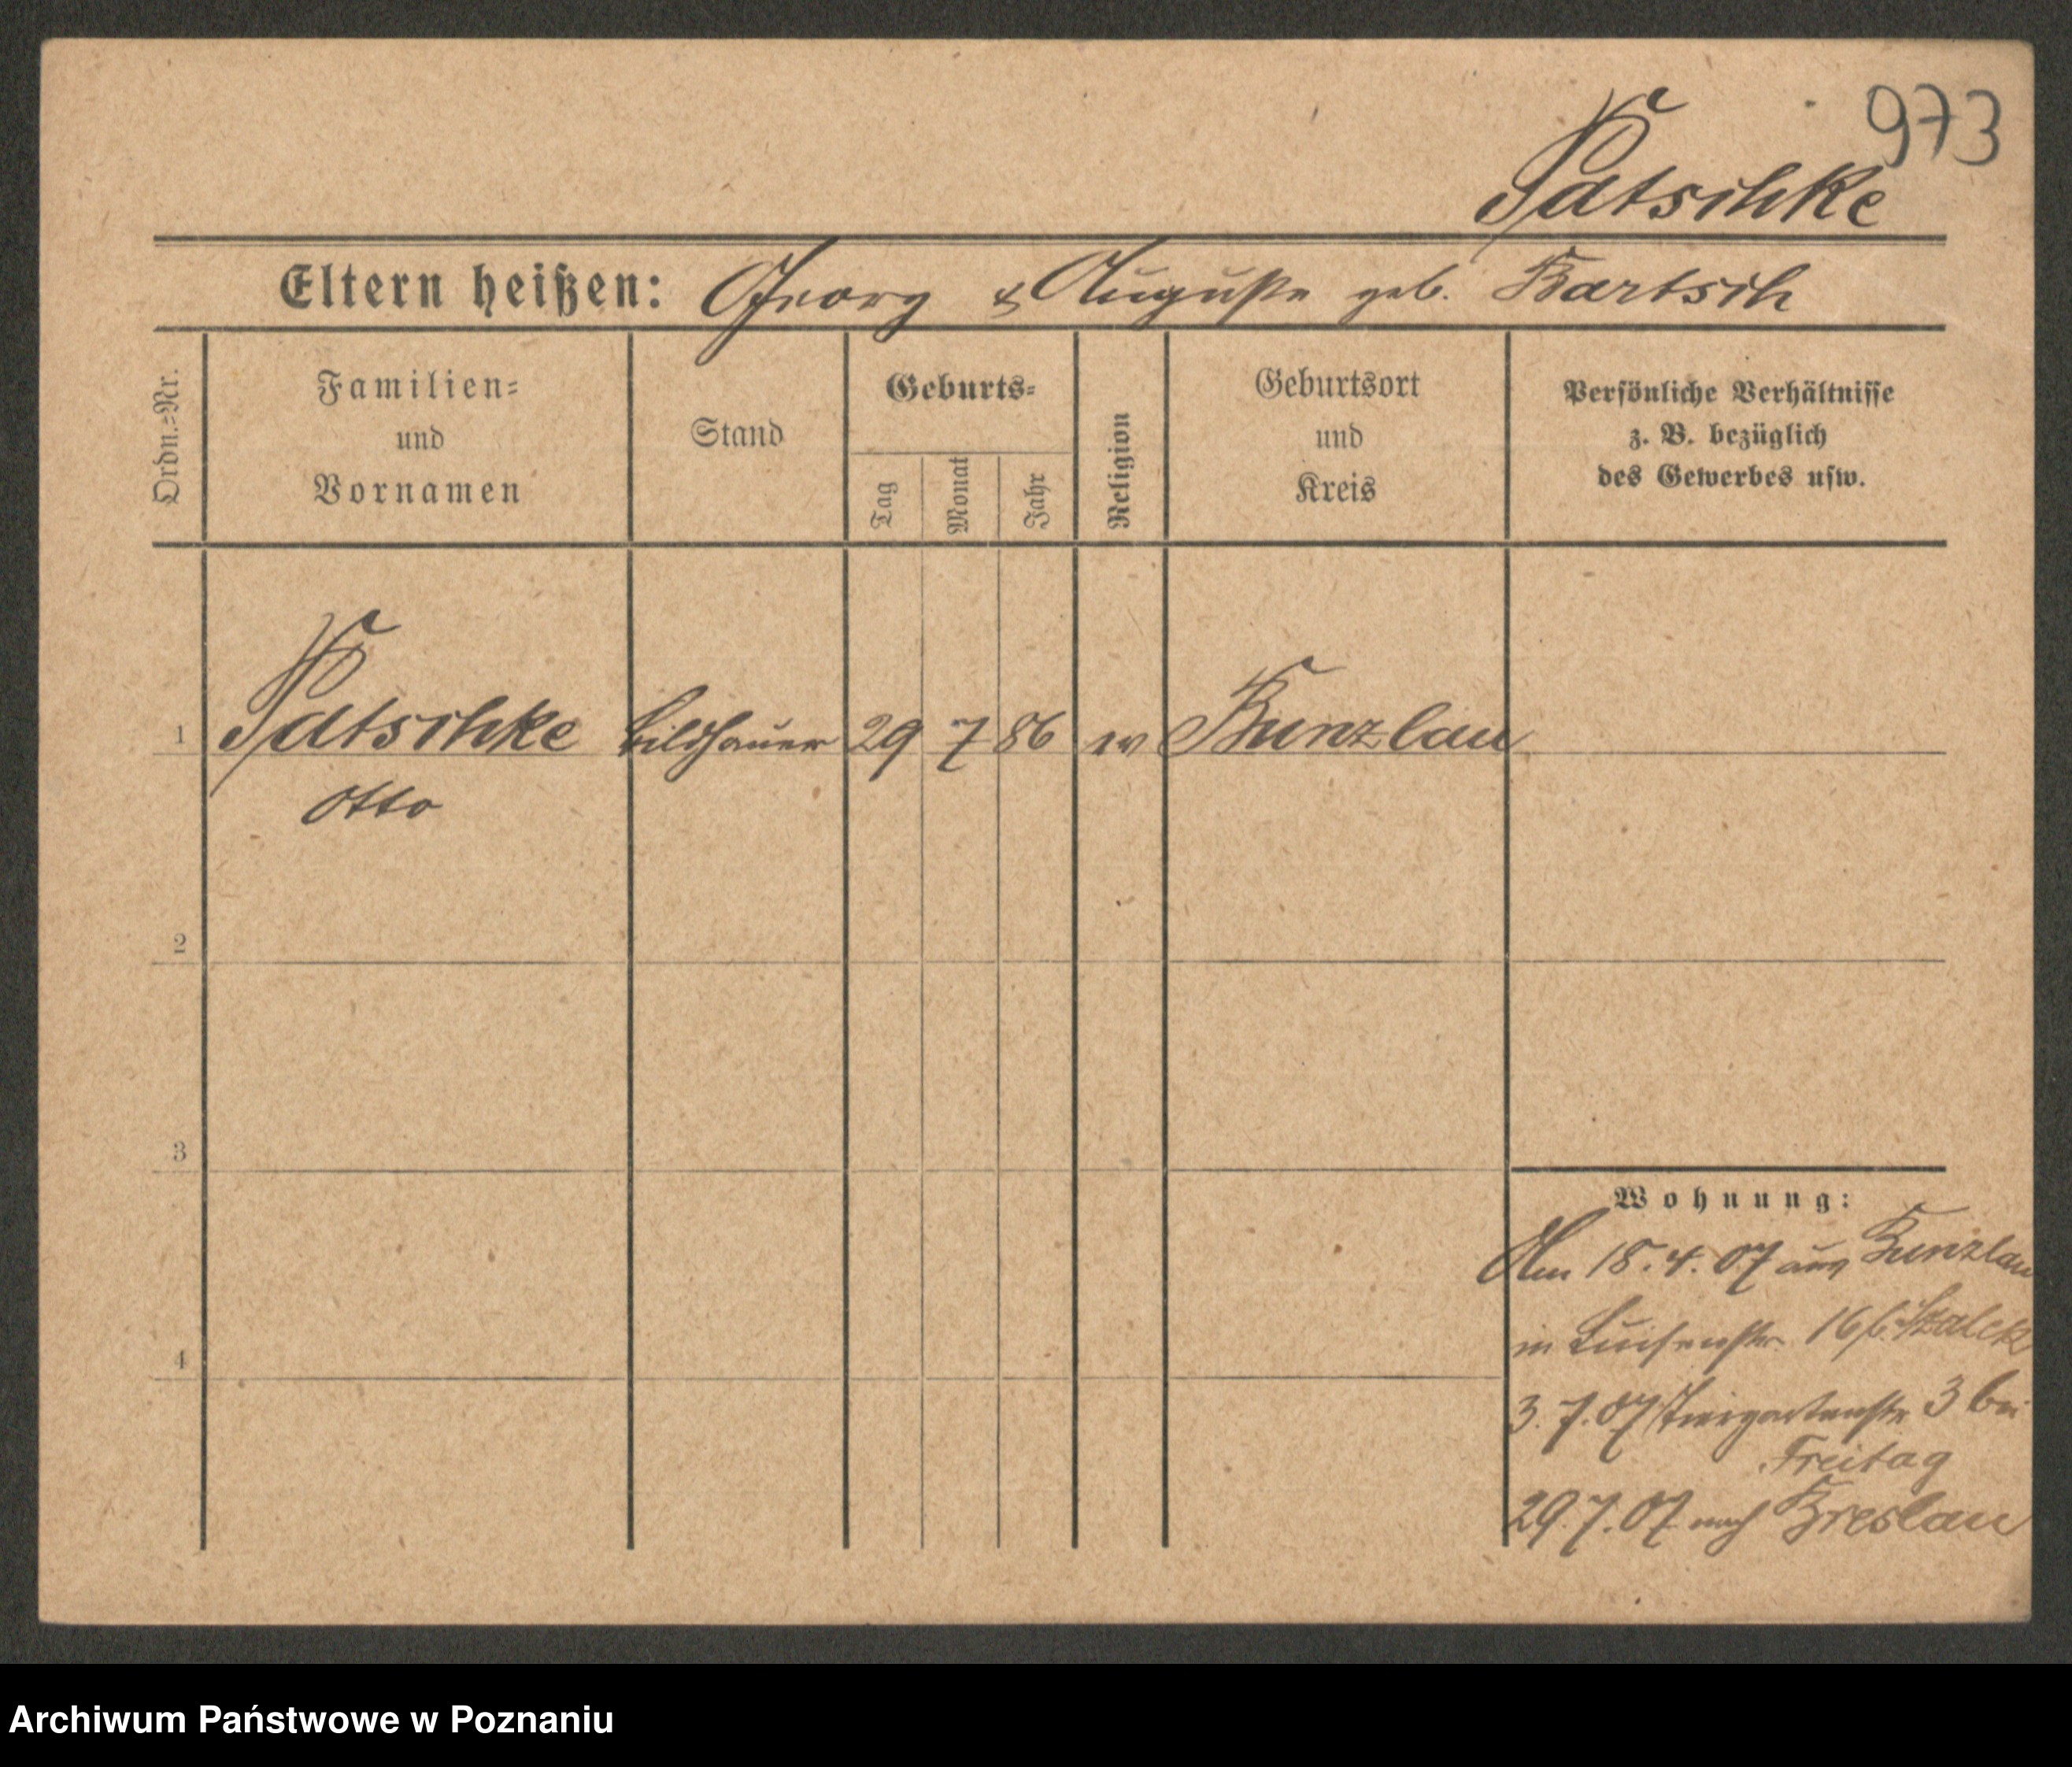 973
Patschke
Eltern heißen: Georg & Auguste geb. Bartsch
Ordn.=Nr.
Familien=
und
Vornamen
Stand
Geburts=
Tag
Monat
Jahr
Religion
Geburtsort
und
Kreis
Persönliche Verhältnisse
z. B. bezüglich
des Gewerbes usw.
1 Patschke Bildhauer 29 7 86 ev Bunzlau
Otto
2
3
4
Wohnung:
Am 18.4.07 aus Bunzlau
in Luisenstr. 16 b.
3.7.07 Tiergartenstr 3 bei
Freitag
29.7.07 nach Breslau
Archiwum Państwowe w Poznaniu